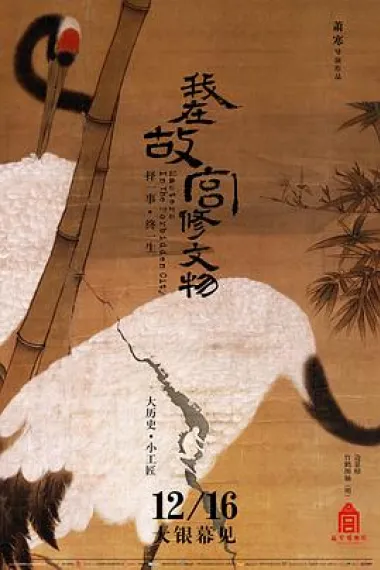 萧寒 导演作品
我在故宫修文物
Masters
In The Forbidden City
择一事·终一生
大历史·小工匠
12/16
大银幕见
边景昭
竹鹤图轴（明）
故宫博物院